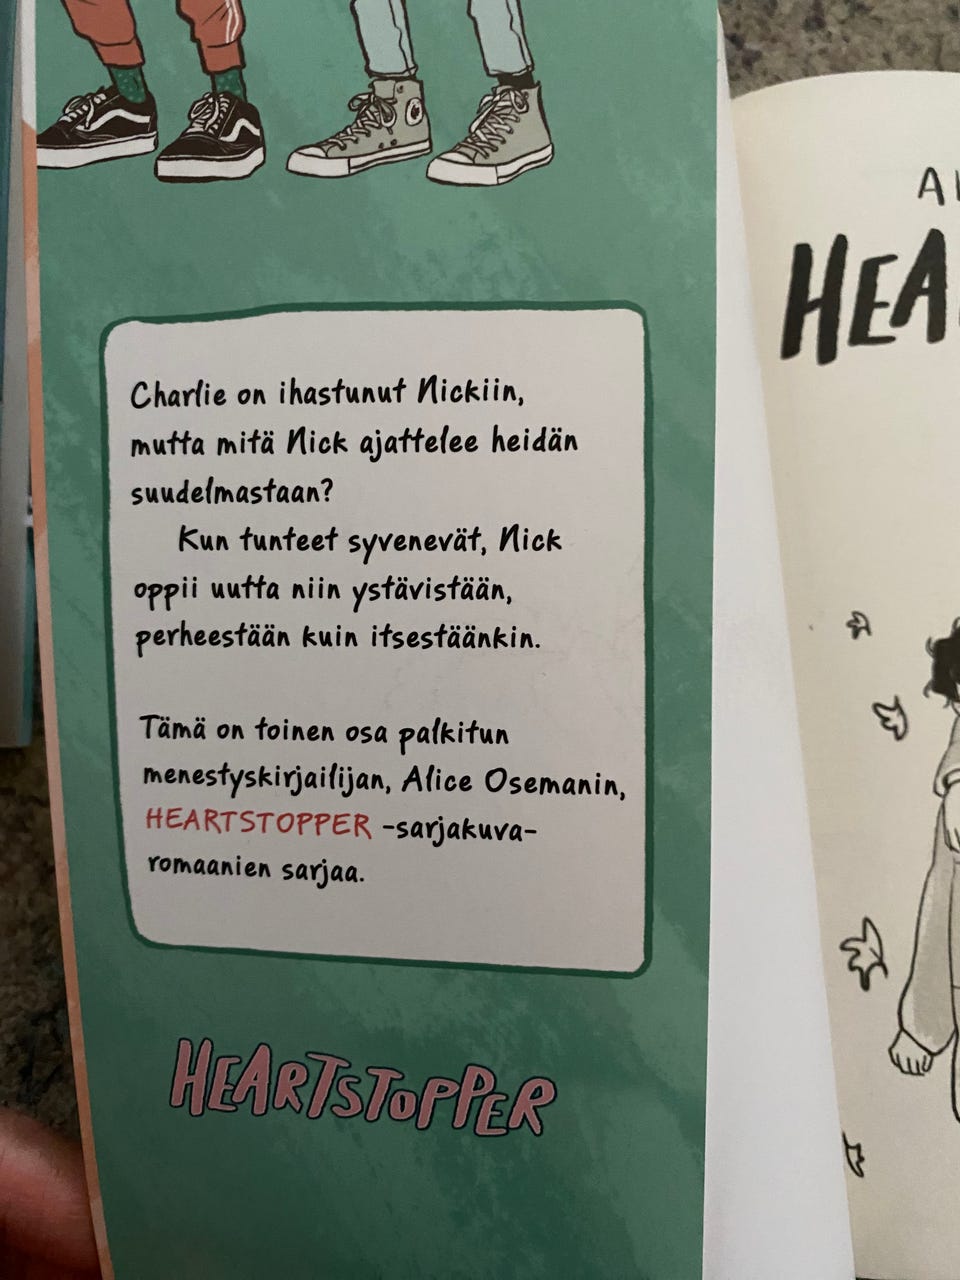 Charlie on ihastunut Nickiin,
mutta mitä Nick ajattelee heidän
suudelmastaan?
Kun tunteet syvenevät, Nick
oppii uutta niin ystävistään,
perheestään kuin itsestäänkin.
Tämä on toinen osa palkitun
menestyskirjailijan, Alice Osemanin,
HEARTSTOPPER -sarjakuva-
romaanien sarjaa.
HEARTSTOPPER